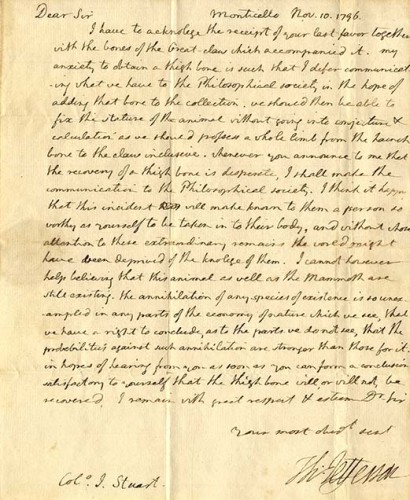 Dear Sir Monticello Nov. 10. 1796.
I have to acknolege the receipt of your last favor together
with the bones of the Great-claw which accompanied it. my
anxiety to obtain a thigh bone is such that I defer communicat-
ing what we have to the Philosophical society in the hope of
adding that bone to the collection. we should then be able to
fix the stature of the animal without going into conjecture &
calculation as we should possess a whole limb from the haunch
bone to the claw inclusive. whenever you announce to me that
the recovery of a thigh bone is desperate, I shall make the
communication to the Philosophical society. I think it happy
that this incident will make known to them a person so
worthy as yourself to be taken into their body, and without whose
attention to these extraordinary remains the world might
have been deprived of the knolege of them. I cannot however
help believing that this animal as well as the Mammoth are
still existing. the annihilation of any species of existence is so unex-
ampled in any parts of the economy of nature which we see, that
we have a right to conclude, as to the parts we do not see, that the
probabilities against such annihilation are stronger than those for it.
in hopes of hearing from you as soon as you can form a conclusion
satisfactory to yourself that the thigh bone will, or will not, be
recovered, I remain with great respect & esteem Dr. Sir
Your most obedt. servt
Th: Jefferson
Colo. J. Stuart.